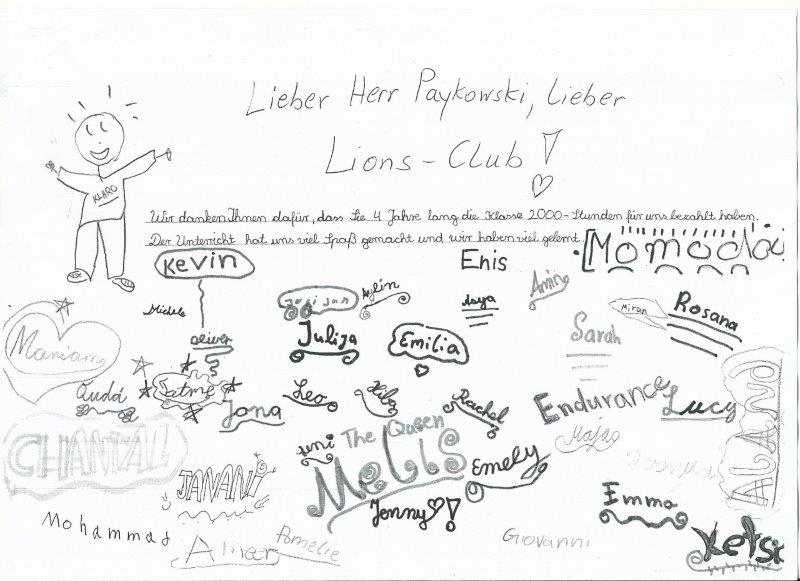 Lieber Herr Paykowski, lieber
Lions-Club!
KLARO
Wir danken Ihnen dafür, dass Sie 4 Jahre lang die Klasse 2000-Stunden für uns bezahlt haben.
Der Unterricht hat uns viel Spaß gemacht und wir haben viel gelernt.
Momodou
Kevin
Enis
Amin
Aylin
Asya
Michele
Miran
Rosana
Oliver
Julija
Emilia
Sarah
Mariama
Fatme
Leo
Rachel
Endurance
Lucy
Jona
The Queen
Melis
CHANTAL
JANANI
Emely
ALAND
Jenny!
Emma
Mohammad
Ameer
Pamelie
Giovanni
Ketsia